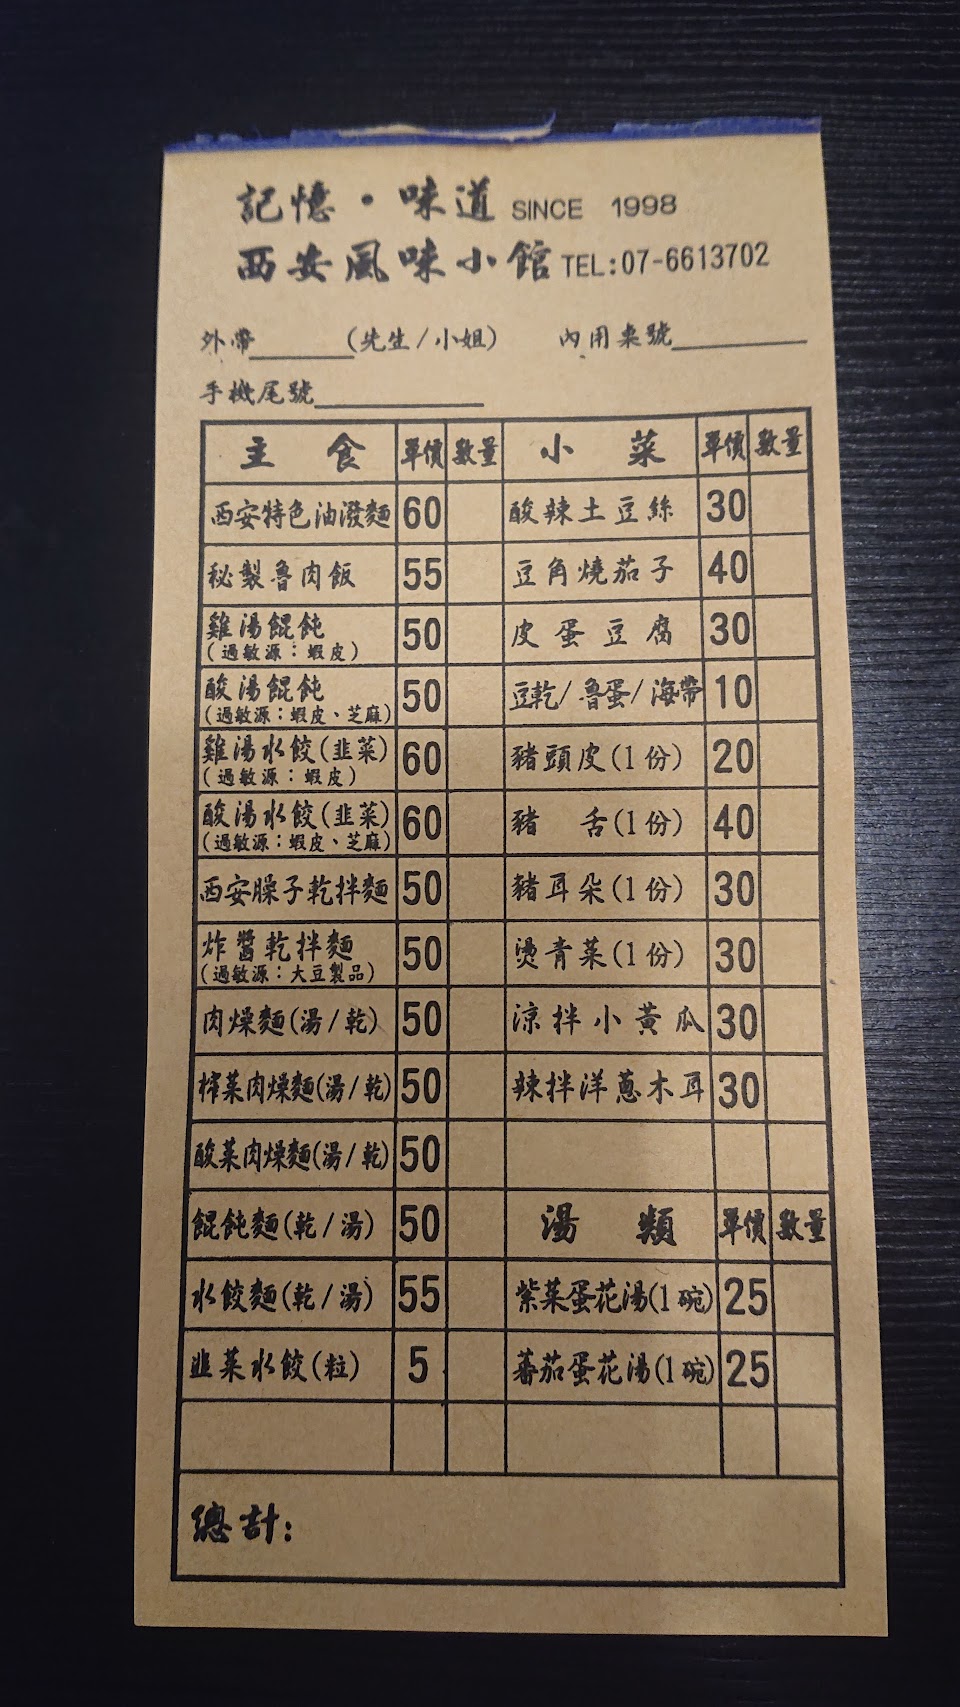 記憶・味道 SINCE 1998
西安風味小館 TEL:07-6613702
外帶______(先生/小姐) 內用桌號________
手機尾號__________
主食 單價 數量 小菜 單價 數量
西安特色油潑麵 60 酸辣土豆絲 30
秘製魯肉飯 55 豆角燒茄子 40
雞湯餛飩 50 皮蛋豆腐 30
(過敏源：蝦皮)
酸湯餛飩 50 豆乾/魯蛋/海帶 10
(過敏源：蝦皮、芝麻)
雞湯水餃(韭菜) 60 豬頭皮(1份) 20
(過敏源：蝦皮)
酸湯水餃(韭菜) 60 豬舌(1份) 40
(過敏源：蝦皮、芝麻)
西安臊子乾拌麵 50 豬耳朵(1份) 30
炸醬乾拌麵 50 燙青菜(1份) 30
(過敏源：大豆製品)
肉燥麵(湯/乾) 50 涼拌小黃瓜 30
榨菜肉燥麵(湯/乾) 50 辣拌洋蔥木耳 30
酸菜肉燥麵(湯/乾) 50
餛飩麵(乾/湯) 50 湯類 單價 數量
水餃麵(乾/湯) 55 紫菜蛋花湯(1碗) 25
韭菜水餃(粒) 5 蕃茄蛋花湯(1碗) 25
總計: